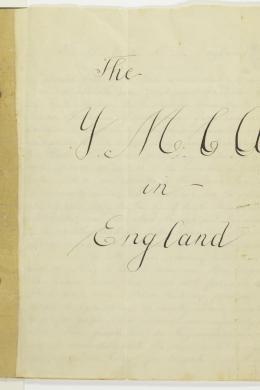 The
Y. M. C. A
in -
England